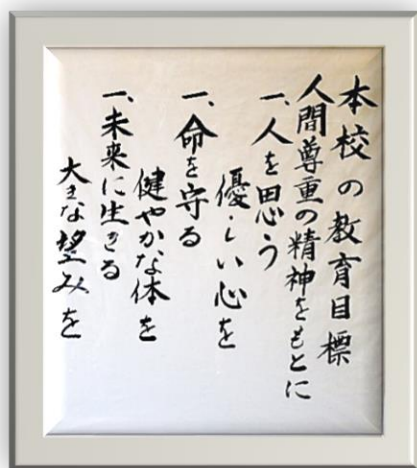 本校の教育目標
人間尊重の精神をもとに
一、人を思う
優しい心を
一、命を守る
健やかな体を
一、未来に生きる
大きな望みを